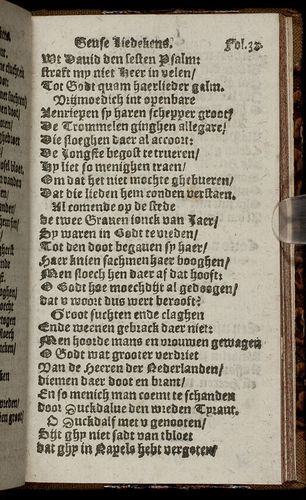 Geuse Liedekens. Fol.32.
Wt Dauid den sesten Psalm:
straft my niet Heer in velen/
Tot Godt quam haerlieder galm.
Vrijmoedich int openbare
Aenriepen sy haren schepper groot/
De Trommelen ginghen allegare/
Die sloeghen daer al accoort:
De Jongste begost te trueren/
Hy liet so menighen traen/
Om dat het niet mochte ghebueren/
Dat die lieden hem conden verstaen.
Al comende op de stede
de twee Grauen jonck van Jaer/
Sy waren in Godt te vreden/
Tot den doot begauen sy haer/
Haer knien sachmen haer booghen/
Men sloech hen daer af dat hooft:
O Godt hoe moechdijt al gedoogen/
dat u woort dus wert berooft:
Groot suchten ende claghen
Ende weenen gebrack daer niet:
Men hoorde mans en vrouwen gewagen
O Godt wat grooter verdriet
Van de Heeren der Nederlanden/
diemen daer doot en brant/
En so menich man coemt te schanden
door Duckdalue den wreden Tyrant.
O Duckdalf met u genooten/
Sijt ghy niet sadt van tbloet
dat ghy in Napels hebt vergoten/